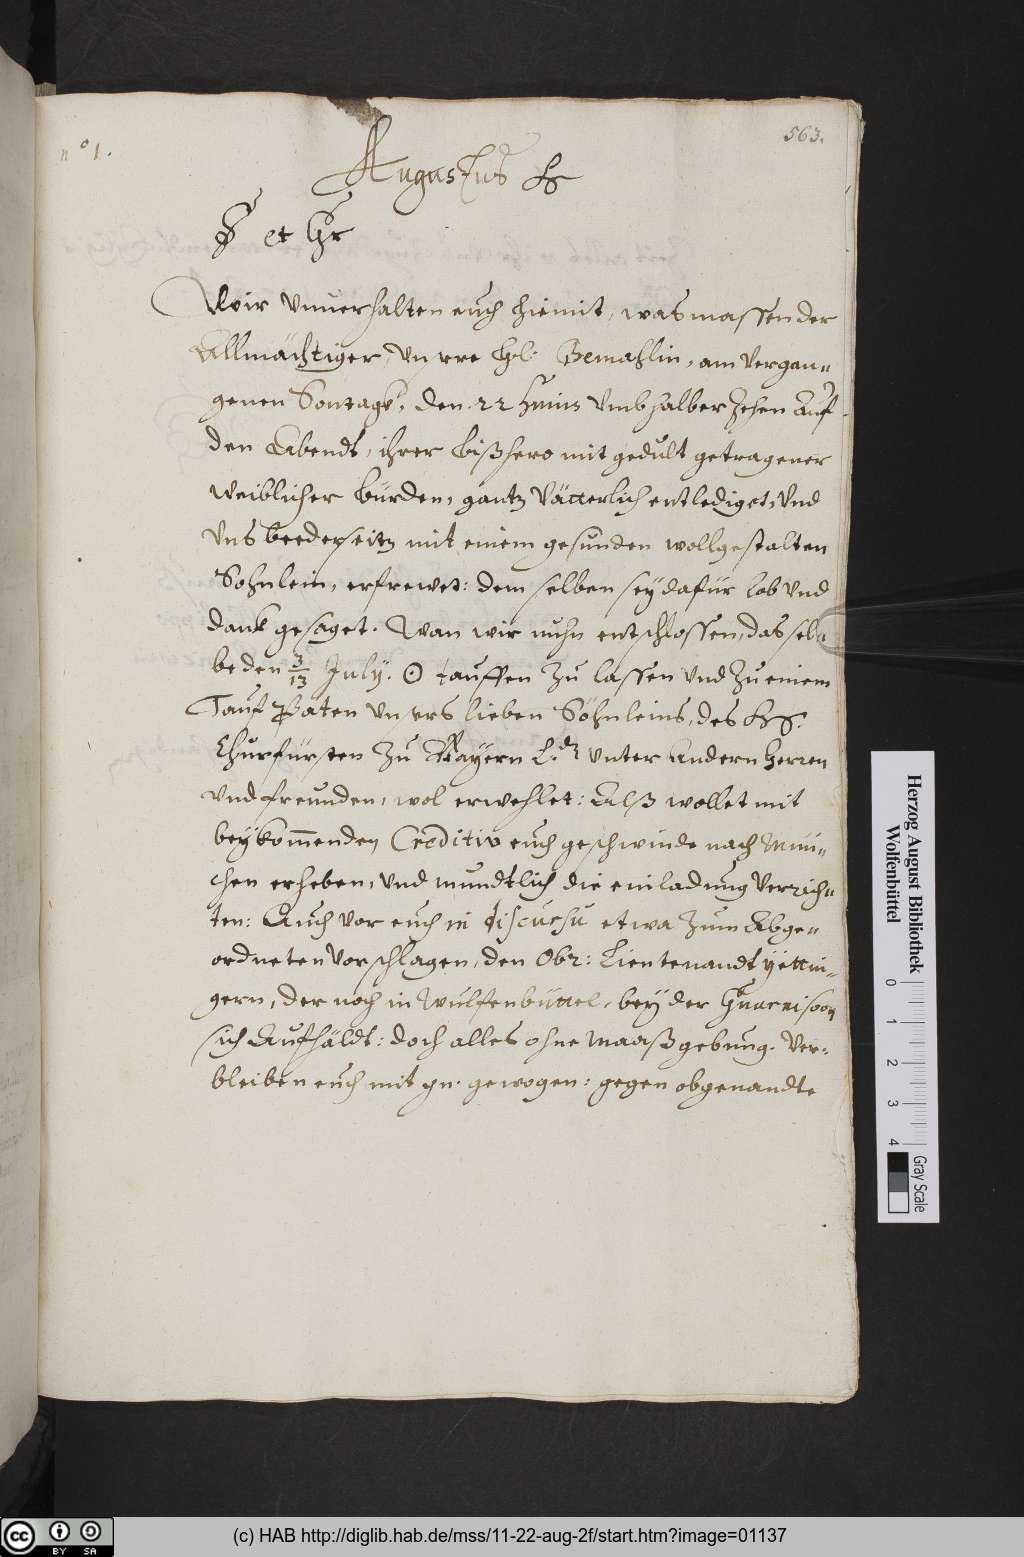 563.
nº 1.
Augustus H
P et Gr
Wir Vnuerhalten euch hiemit, was massen der
Allmächtiger, Vnsere hl: Gemahlin, am vergan=
genen Sontags, den 22 huius Vmb halber Zehen Auf
den Abendt, ihrer bißhero mit gedult getragener
weiblicher bürden, gantz Vätterlich entlediget, Vnd
Vns beederseitz mit einem gesunden wollgestalten
Sohnlein, erfrewet: dem selben sey dafür lob Vnd
dank gesaget. Wan wir nuhn entschlossen, das selb
be den 3/13 July. ☉ tauffen Zu lassen Vnd Zu einem
Tauf Paten Vnsers lieben Söhnleins, des H.
Churfürsten Zu Bayern L.d Vnter Andern Herren
Vnd freunden, wol erwehlet: Alß wollet mit
beykom̅enden Creditiv euch geschwinde nach Mün=
chen erheben, Vnd mundtlich die einladung Verrich=
ten: Auch Vor euch in discursu etwa Zum Abge=
ordneten Vorschlagen, den Obr: Lieutenandt
gern, der noch in Wulfenbüttel, bey der Guarnison
sich Aufhäldt: doch alles ohne Maaßgebung. Ver=
bleiben euch mit gn. gewogen: gegen obgenandte
Herzog August Bibliothek
Wolfenbüttel
0 1 2 3 4
Gray Scale
(c) HAB http://diglib.hab.de/mss/11-22-aug-2f/start.htm?image=01137
cc BY SA